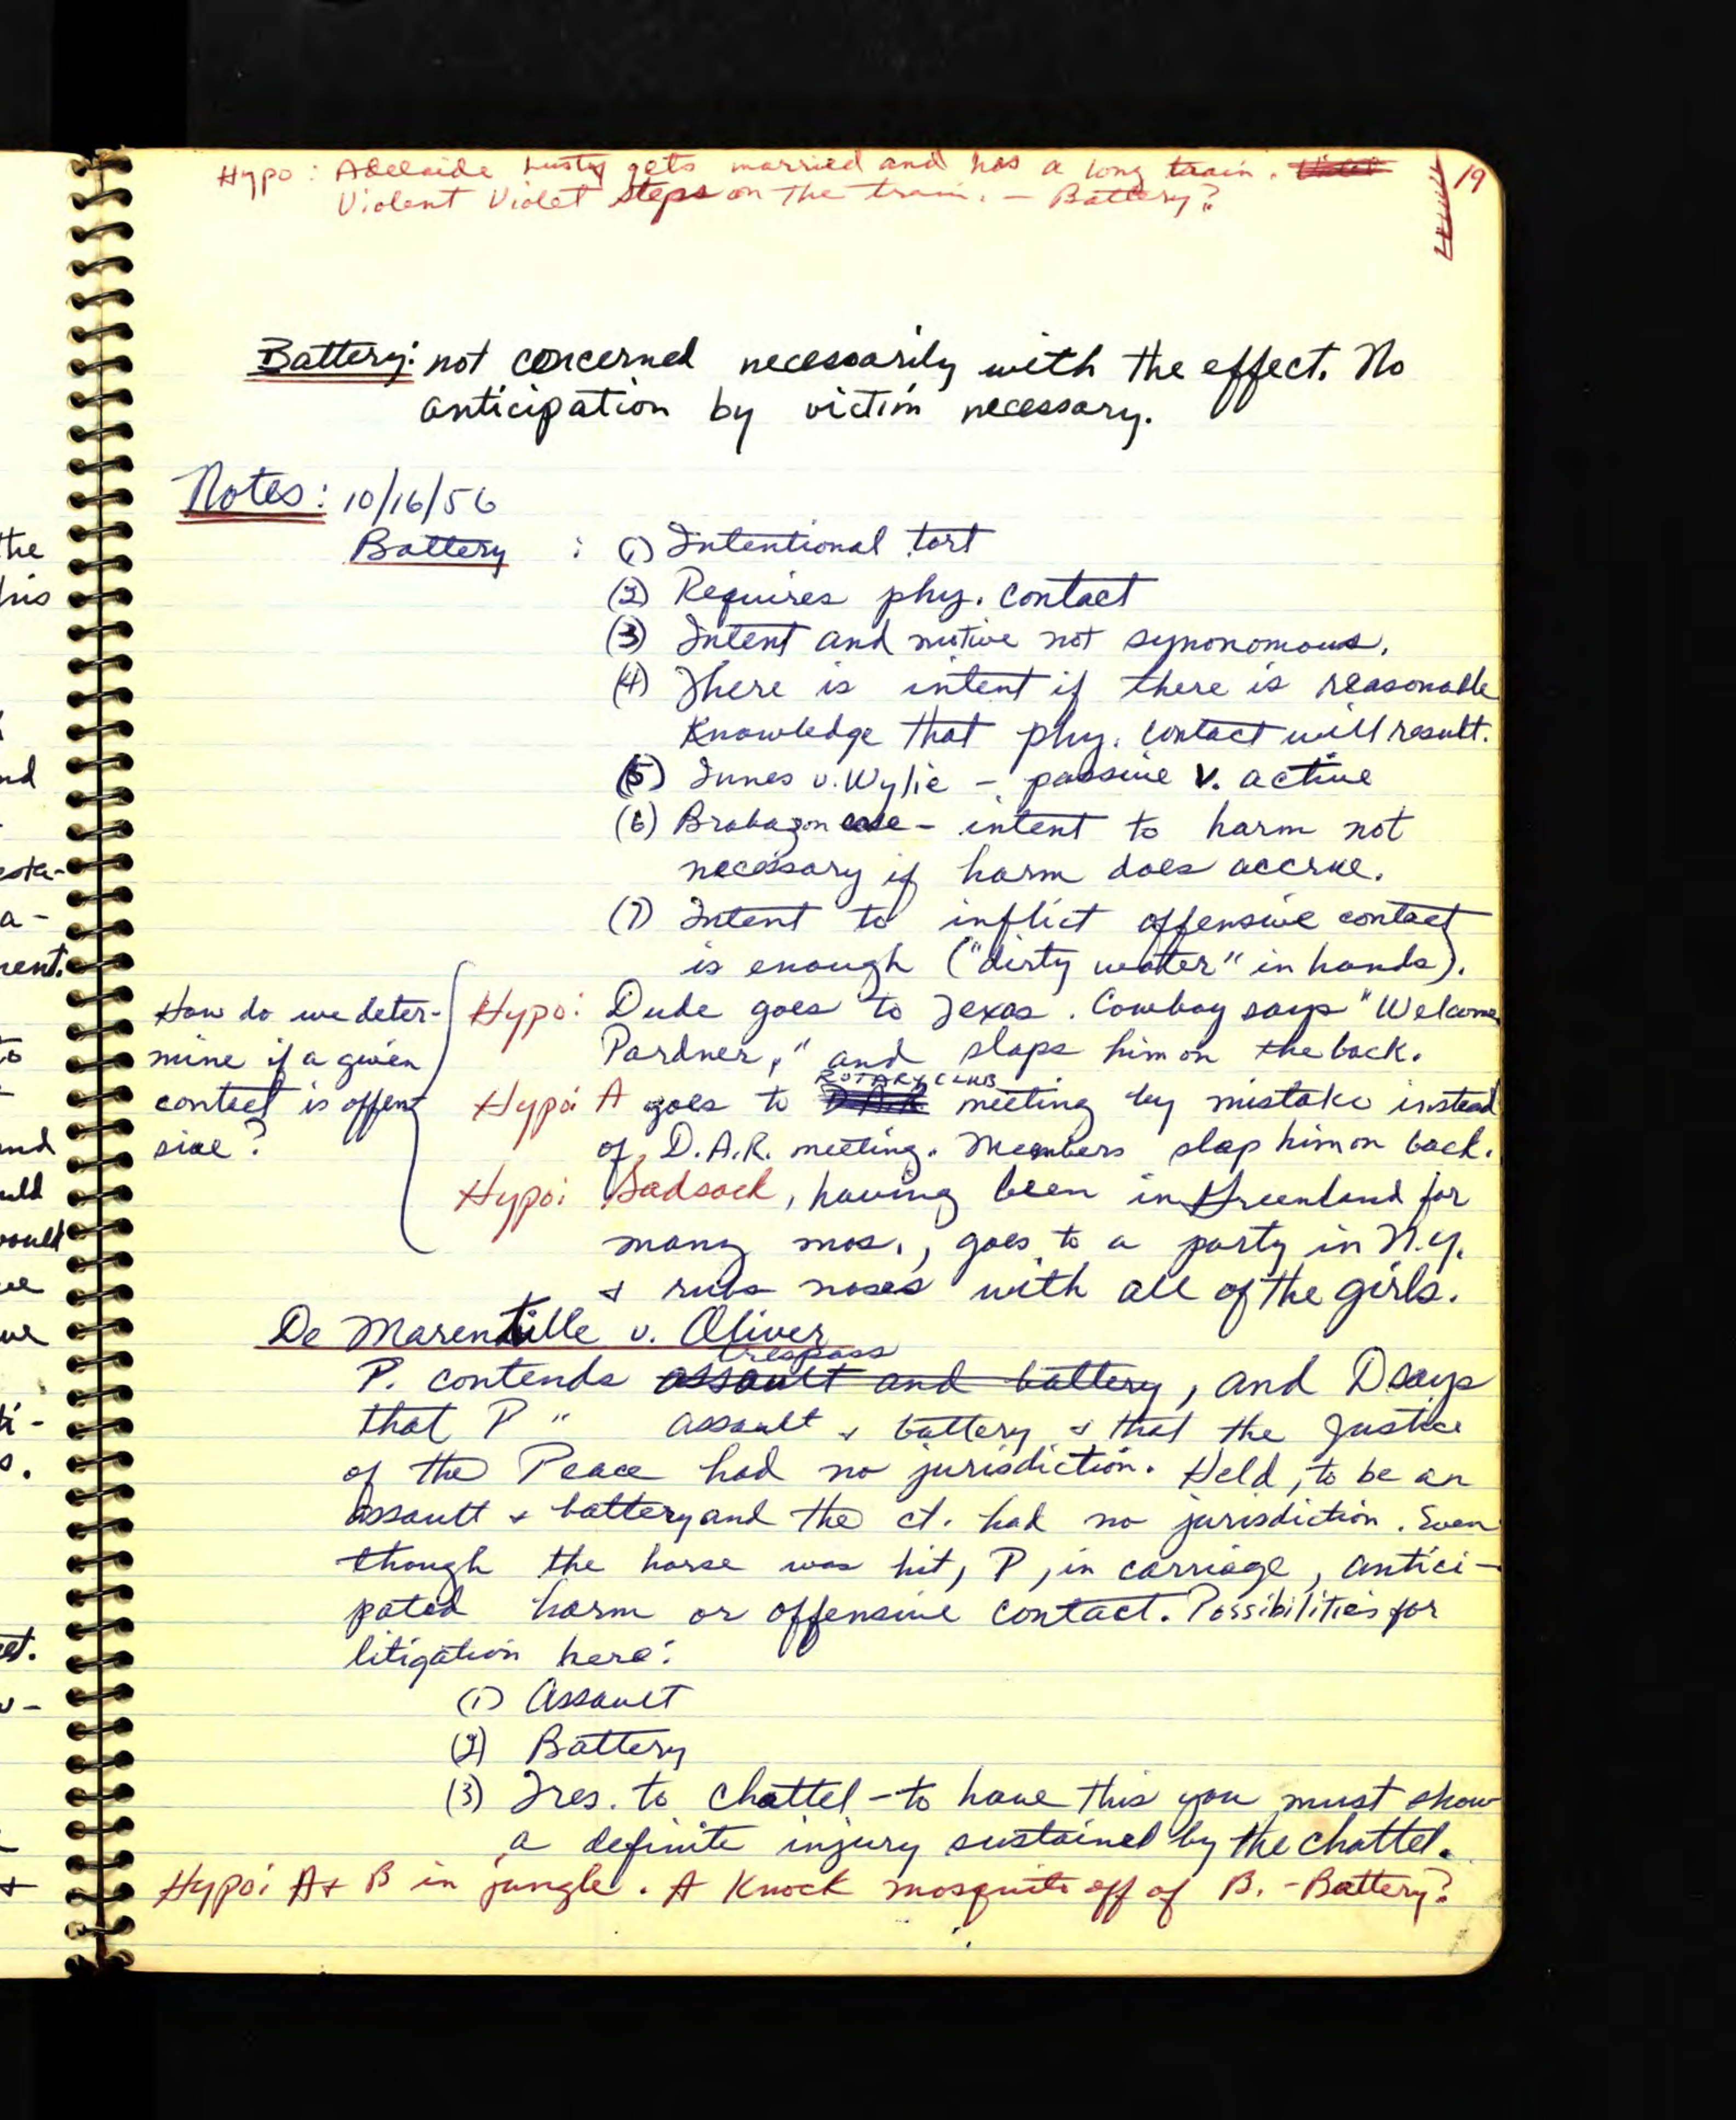 Hypo: Adelaide Lusty gets married and has a long train. Violet 19
Violent Violet steps on the train. — Battery?
Battery: not concerned necessarily with the effect. No
anticipation by victim necessary.
Notes: 10/16/56
Battery : (1) Intentional tort
(2) Requires phy. contact
(3) Intent and motive not synonomous.
(4) There is intent if there is reasonable
knowledge that phy. contact will result.
(5) Innes v. Wylie — passive v. active
(6) Brabazon case — intent to harm not
necessary if harm does accrue.
(7) Intent to inflict offensive contact
is enough ("dirty water" in hands).
How do we deter-
mine if a given
contact is offen
sive?
Hypo: Dude goes to Texas. Cowboy says "Welcome
Pardner," and slaps him on the back.
ROTARY CLUB
Hypo: A goes to D.A.R. meeting by mistake instead
of D.A.R. meeting. Members slap him on back.
Hypo: Sadsack, having been in Greenland for
many mos., goes to a party in N.Y.
& rubs noses with all of the girls.
De Marentille v. Oliver
trespass
P. contends assault and battery, and D says
that P " assault & battery & that the Justice
of the Peace had no jurisdiction. Held, to be an
assault & battery and the ct. had no jurisdiction. Even
though the horse was hit, P, in carriage, antici-
pated harm or offensive contact. Possibilities for
litigation here:
(1) Assault
(2) Battery
(3) Tres. to Chattel — to have this you must show
a definite injury sustained by the chattel.
Hypo: A + B in jungle. A knock mosquito off of B. — Battery?
the
his
nd
esta-
a-
ment.
to
and
uld
would
ti-
s.